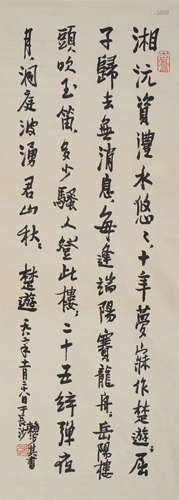 湘沅資澧水悠々十年夢寐作楚遊屈
子歸去無消息每逢端陽賽龍舟岳陽樓
頭吹玉笛多少騷人登此樓二十五絃彈夜
月洞庭波湧君山秋 楚遊
一九八二年十一月二十八日于長沙
書